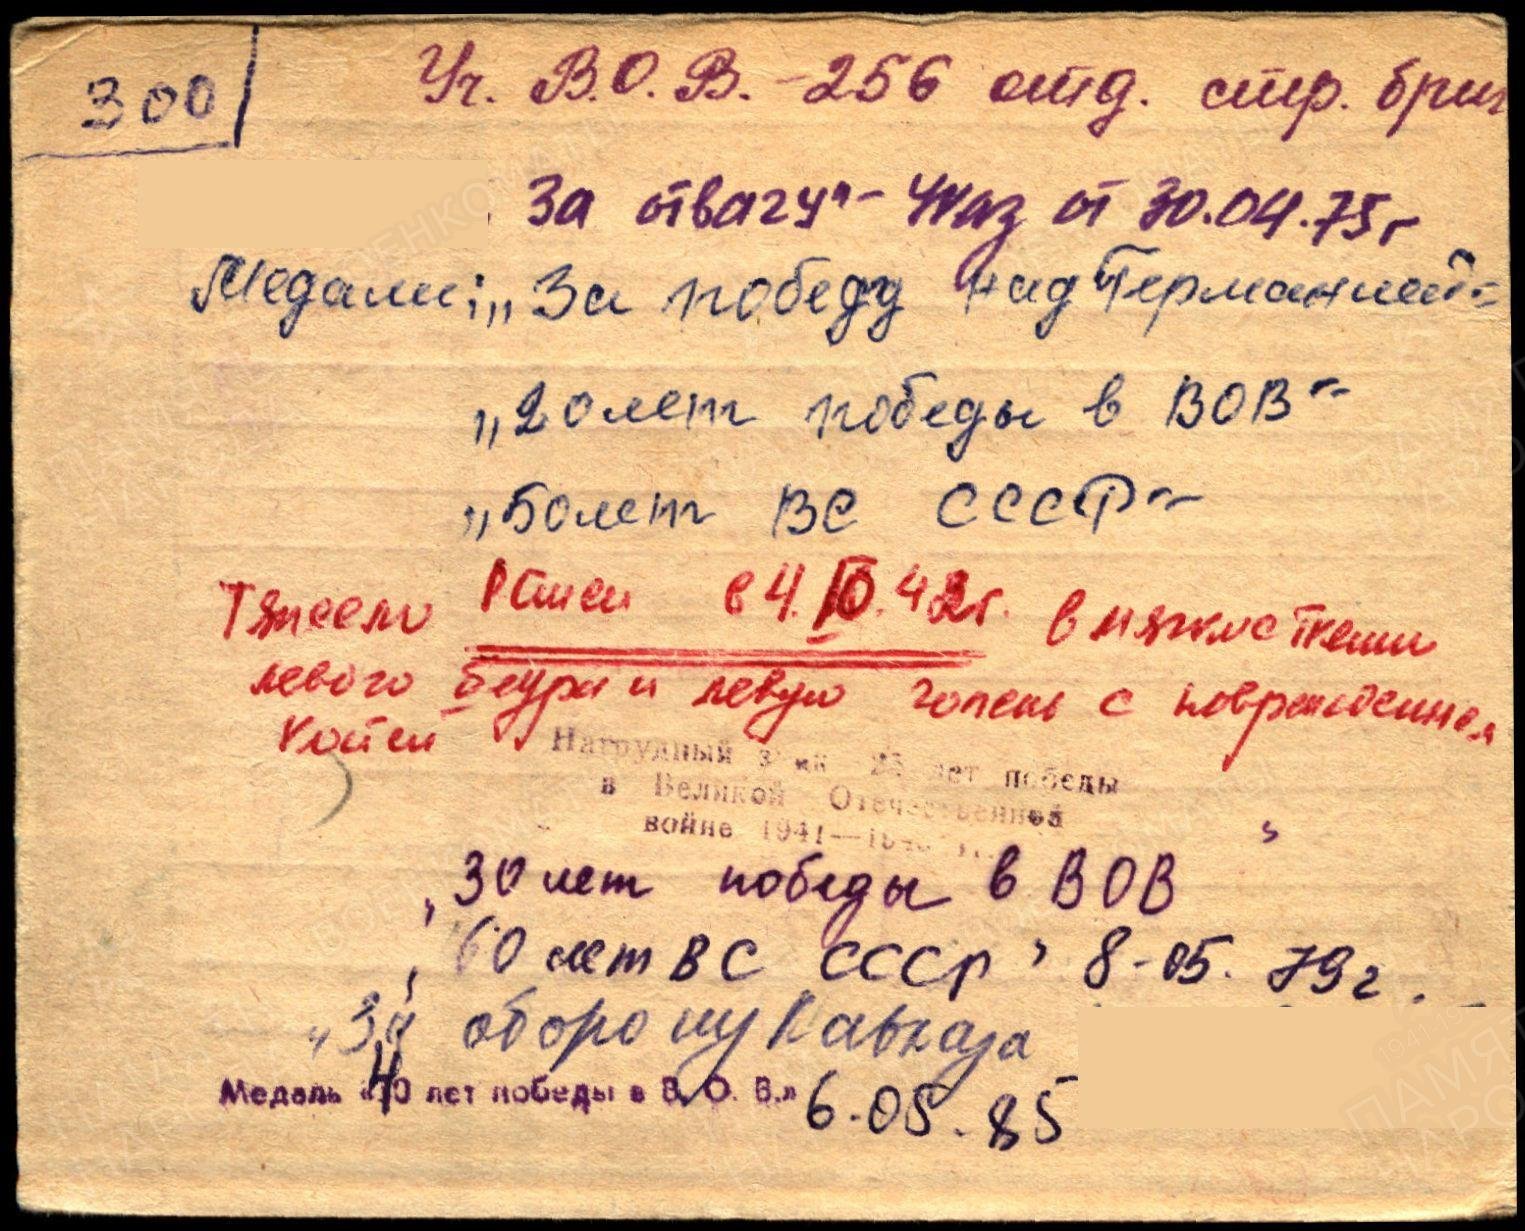 300
Уч. В.О.В. - 256 отд. стр. бриг
За отвагу" - Указ от 30.04.75г
Медали: „За победу над Германией"
„20 лет победы в ВОВ"
„50 лет ВС СССР"
Тяжело ранен в 4. 42г. в мягкие ткани
левого бедра и левую голень с повреждением
костей
Нагрудный знак 25 лет победы
в Великой Отечественной
войне 1941—1945 г.
„30 лет победы в ВОВ
„60 лет ВС СССР" 8-05.79г.
„За оборону Кавказа
Медаль «40 лет победы в В. О. В.» 6.05.85